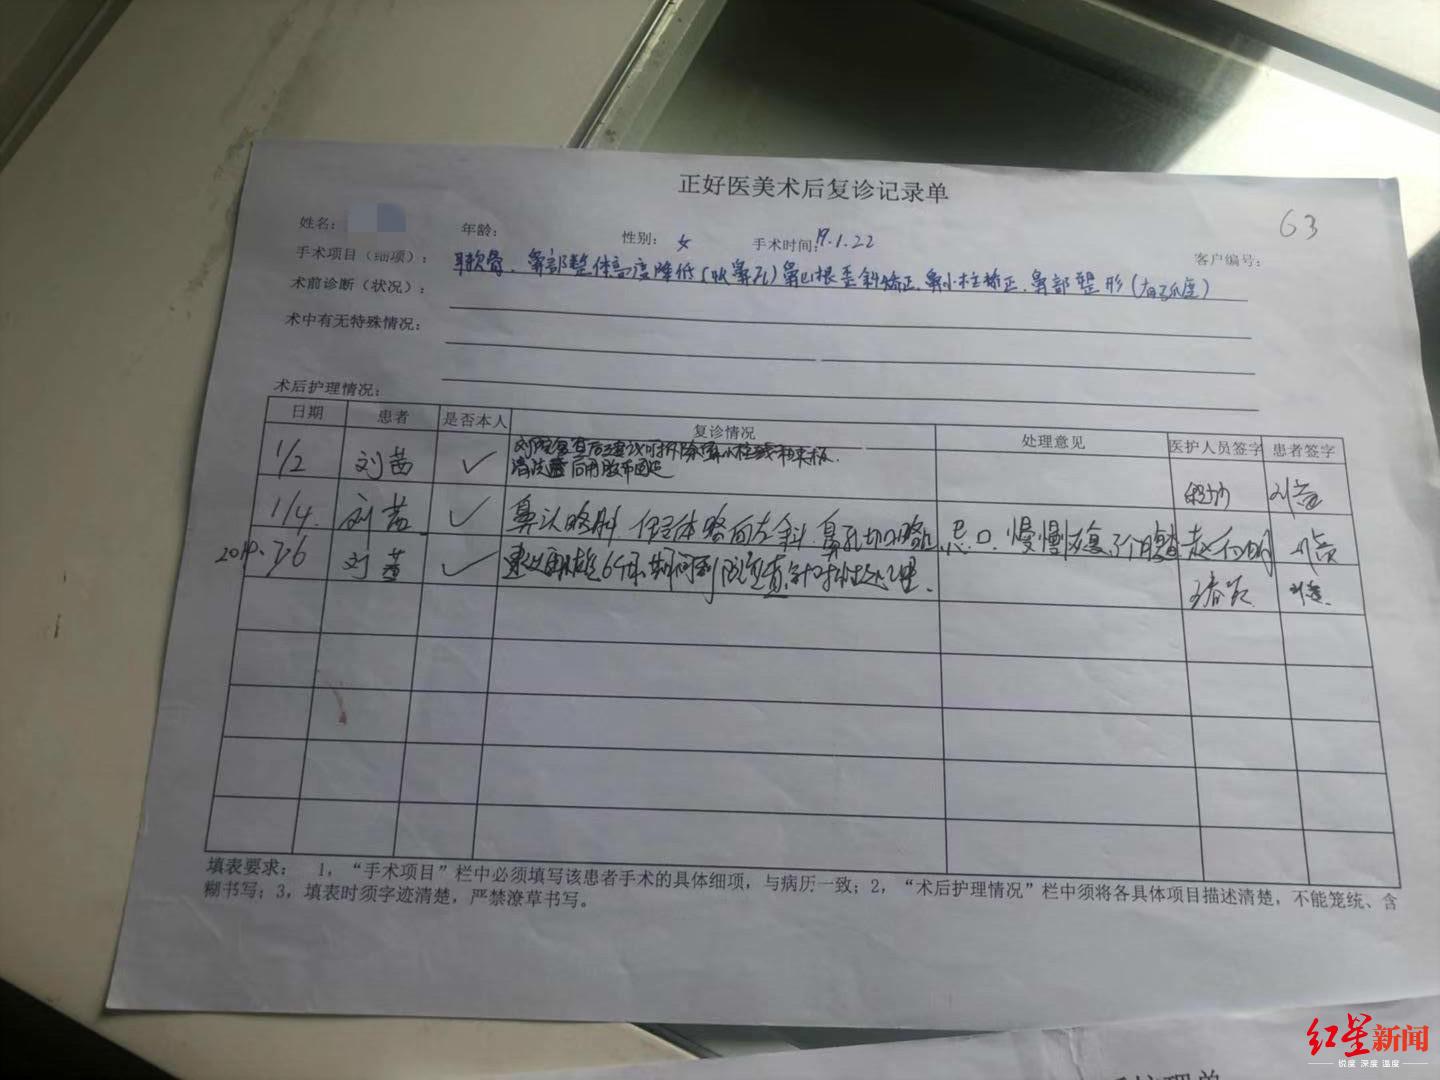 正好医美术后复诊记录单
63
姓名: 年龄: 性别: 女 手术时间: 19.1.22 客户编号:
手术项目（细项）: 耳软骨、鼻部整体高度降低(收鼻孔)鼻山根歪斜矫正、鼻小柱矫正、鼻部整形(
术前诊断（状况）:
术中有无特殊情况:
术后护理情况:
日期 患者 是否本人 复诊情况 处理意见 医护人员签字 患者签字
1/2 刘茜 ✓ 复查后建议可拆除鼻小柱线和夹板
用胶布固定
1/4 刘茜 ✓ 鼻头略肿 略向左斜、鼻孔切口略 忌口、慢慢恢复
2019. 7/6 刘茜 ✓ 建议 6个月 期间到院复查、针对性处理.
填表要求: 1，“手术项目”栏中必须填写该患者手术的具体细项，与病历一致；2，“术后护理情况”栏中须将各具体项目描述清楚，不能笼统、含
糊书写；3，填表时须字迹清楚，严禁潦草书写。
红星新闻
锐度 深度 温度